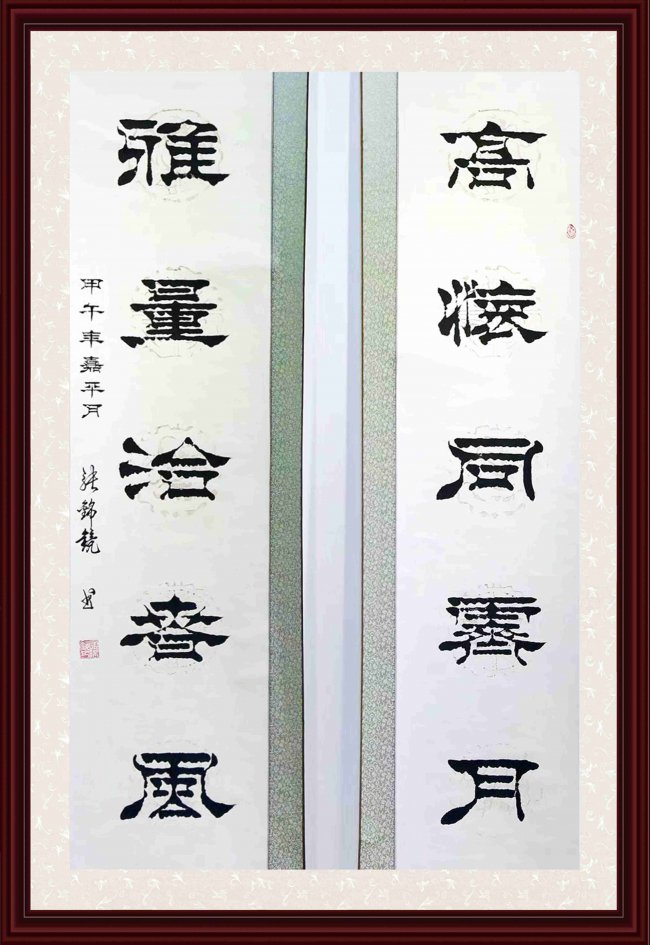 高懷同霽月
雅量洽春風
甲午年嘉平月 張錦鏡 書